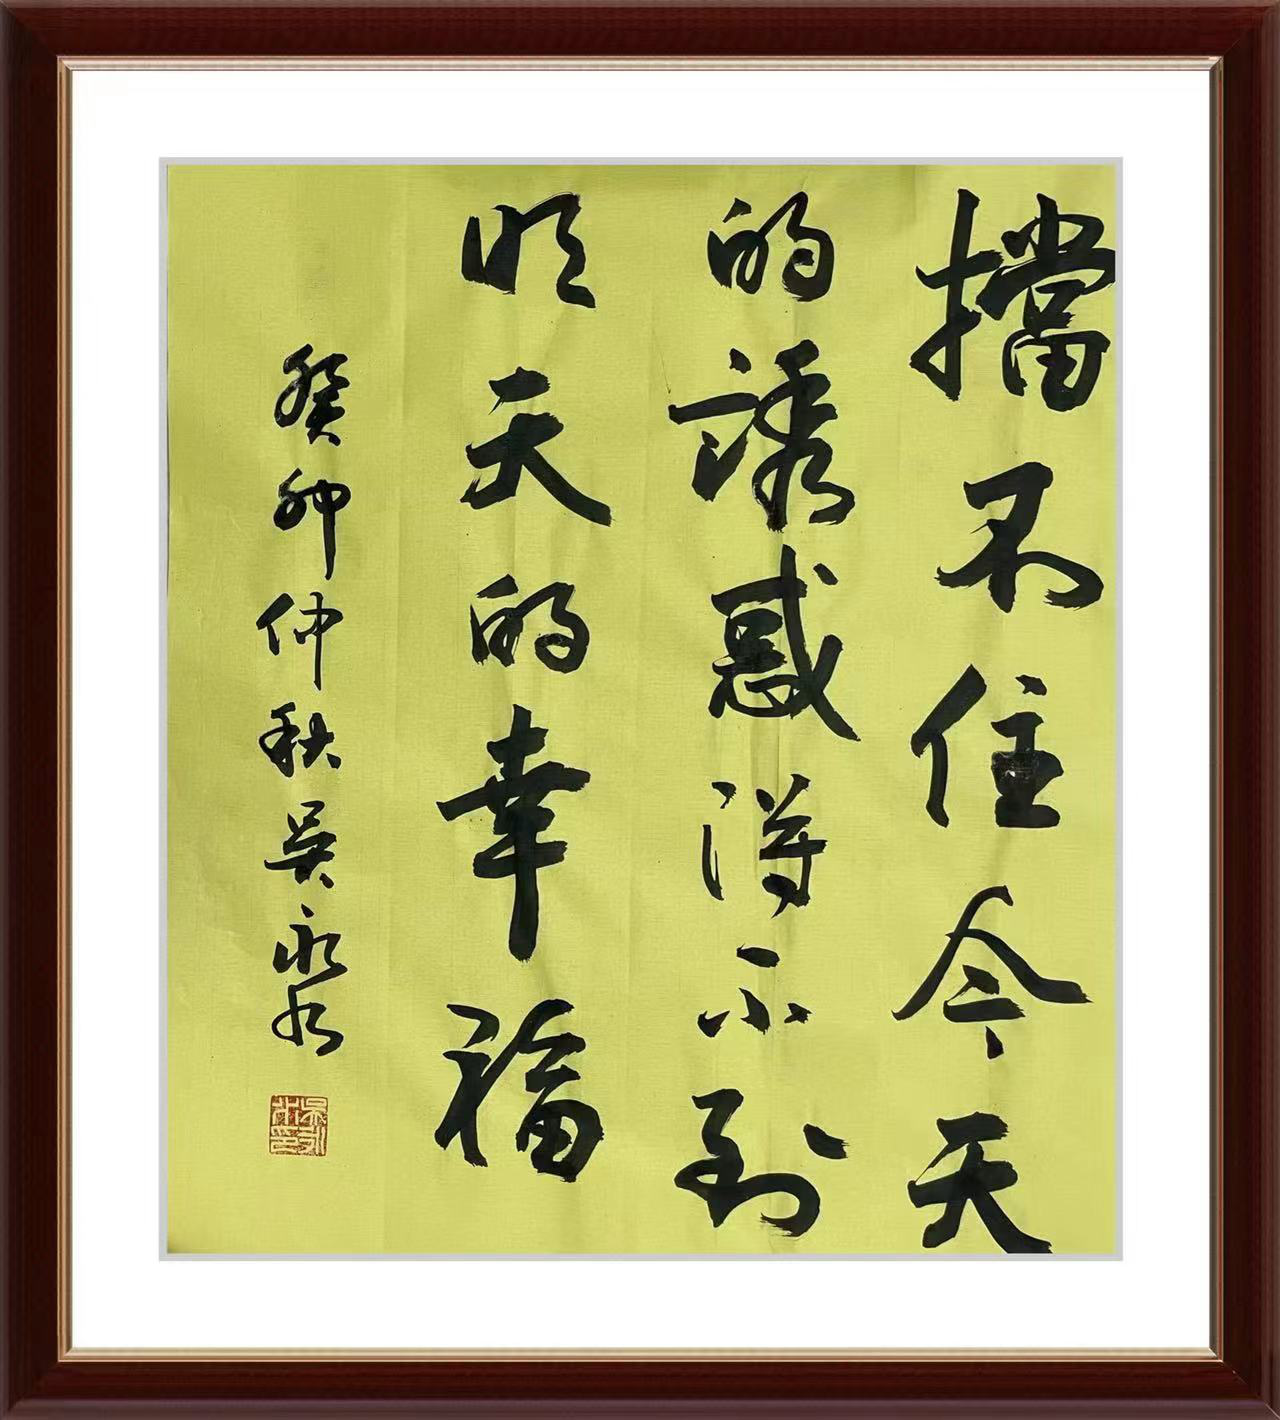 擋不住今天
的誘惑得不到
明天的幸福
癸卯仲秋吴永